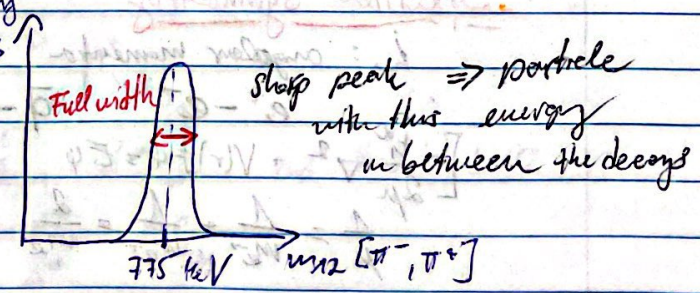 Full width
sharp peak ⇒ particle
with this energy
in between the decays
775 MeV
m12 [π⁻, π⁺]